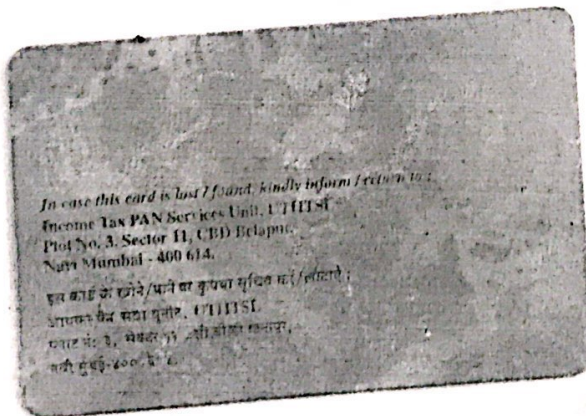 In case this card is lost / found, kindly inform / return to :
Income Tax PAN Services Unit, UTIITSL
Plot No. 3, Sector 11, CBD Belapur,
Navi Mumbai - 400 614.
इस कार्ड के खोने/पाने पर कृपया सूचित करें/लौटाएं :
आयकर पैन सेवा यूनीट, UTIITSL
प्लाट नं: ३, सेक्टर ११, सी.बी.डी. बेलापूर,
नवी मुंबई-४००